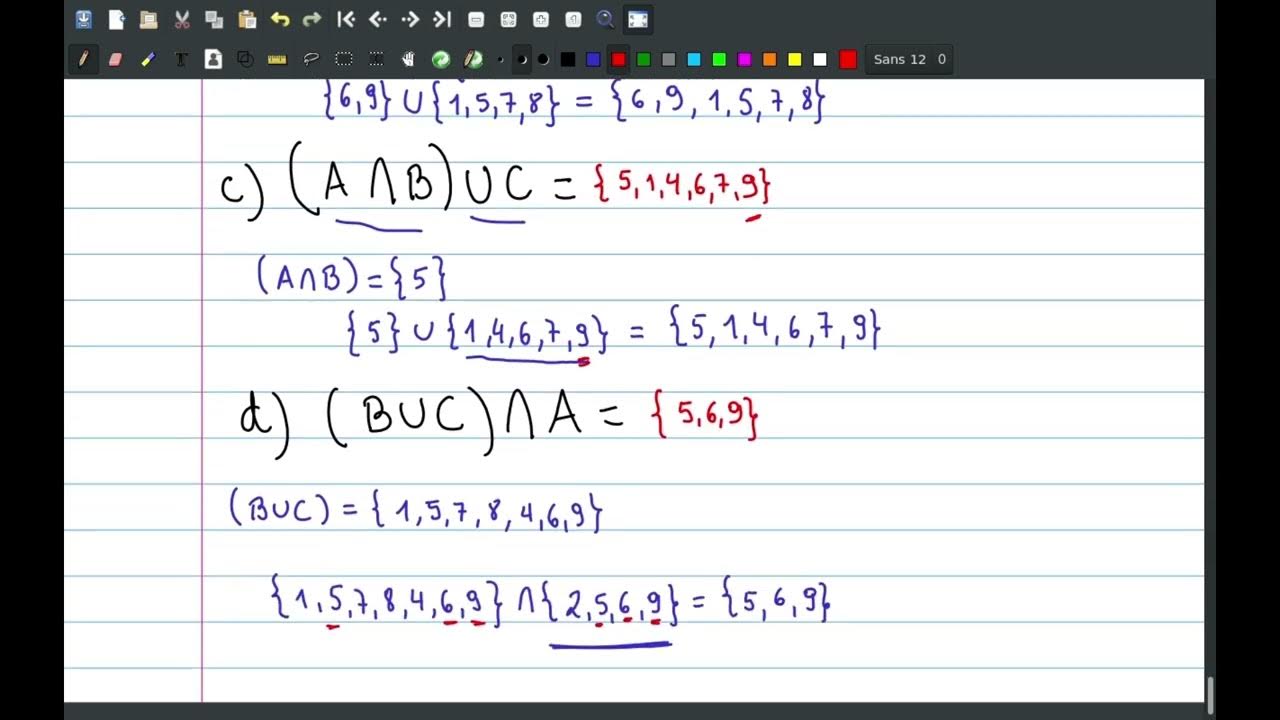 Sans 12 0
{6,9} ∪ {1,5,7,8} = {6,9,1,5,7,8}
c) (A ∩ B) ∪ C = {5,1,4,6,7,9}
(A∩B) = {5}
{5} ∪ {1,4,6,7,9} = {5,1,4,6,7,9}
d) (B∪C) ∩ A = {5,6,9}
(B∪C) = {1,5,7,8,4,6,9}
{1,5,7,8,4,6,9} ∩ {2,5,6,9} = {5,6,9}